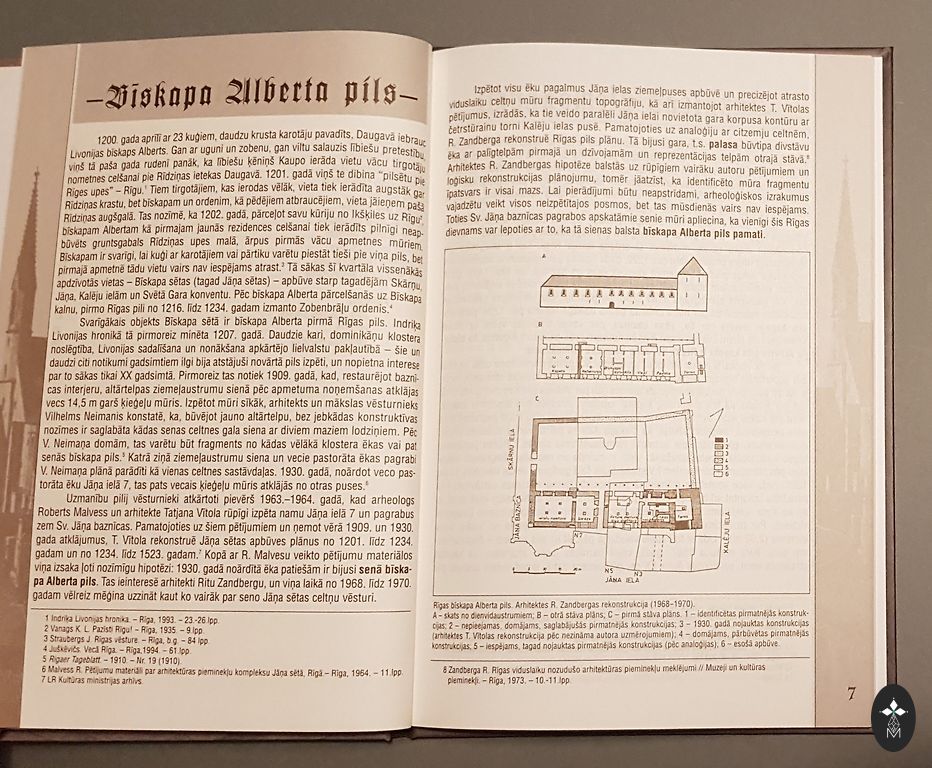 –Bīskapa Alberta pils–
1200. gada aprīlī ar 23 kuģiem, daudzu krusta karotāju pavadīts, Daugavā iebrauc
Livonijas bīskaps Alberts. Gan ar uguni un zobenu, gan viltu salauzis lībiešu pretestību,
viņš tā paša gada rudenī panāk, ka lībiešu ķēniņš Kaupo ierāda vietu vācu tirgotāju
nometnes celšanai pie Rīdziņas ietekas Daugavā. 1201. gadā viņš te dibina "pilsētu pie
Rīges upes" – Rīgu.¹ Tiem tirgotājiem, kas ierodas vēlāk, vieta tiek ierādīta augstāk gar
Rīdziņas krastu, bet bīskapam un ordenim, kā pēdējiem atbraucējiem, vieta jāieņem pašā
Rīdziņas augšgalā. Tas nozīmē, ka 1202. gadā, pārceļot savu kūriju no Ikšķiles uz Rīgu,
bīskapam Albertam kā pirmajam jaunās rezidences celšanai tiek ierādīts pilnīgi neap-
būvēts gruntsgabals Rīdziņas upes malā, ārpus pirmās vācu apmetnes mūriem.
Bīskapam ir svarīgi, lai kuģi ar karotājiem vai pārtiku varētu piestāt tieši pie viņa pils, bet
pirmajā apmetnē tādu vietu vairs nav iespējams atrast.² Tā sākas šī kvartāla vissenākās
apdzīvotās vietas – Bīskapa sētas (tagad Jāņa sētas) – apbūve starp tagadējām Skārņu,
Jāņa, Kalēju ielām un Svētā Gara konventu. Pēc bīskapa Alberta pārcelšanās uz Bīskapa
kalnu, pirmo Rīgas pili no 1216. līdz 1234. gadam izmanto Zobenbrāļu ordenis.⁴
Svarīgākais objekts Bīskapa sētā ir bīskapa Alberta pirmā Rīgas pils. Indriķa
Livonijas hronikā tā pirmoreiz minēta 1207. gadā. Daudzie kari, dominikāņu klostera
noslēgtība, Livonijas sadalīšana un nonākšana apkārtējo lielvalstu pakļautībā – šie un
daudzi citi notikumi gadsimtiem ilgi bija atstājuši novārtā pils izpēti, un nopietna interese
par to sākas tikai XX gadsimtā. Pirmoreiz tas notiek 1909. gadā, kad, restaurējot baznī-
cas interjeru, altārtelpas ziemeļaustrumu sienā pēc apmetuma noņemšanas atklājas
vecs 14,5 m garš ķieģeļu mūris. Izpētot mūri sīkāk, arhitekts un mākslas vēsturnieks
Vilhelms Neimanis konstatē, ka, būvējot jauno altārtelpu, bez jebkādas konstruktīvas
nozīmes ir saglabāta kādas senas celtnes gala siena ar diviem maziem lodziņiem. Pēc
V. Neimaņa domām, tas varētu būt fragments no kādas vēlākā klostera ēkas vai pat
senās bīskapa pils.⁵ Katrā ziņā ziemeļaustrumu siena un vecie pastorāta ēkas pagrabi
V. Neimaņa plānā parādīti kā vienas celtnes sastāvdaļas. 1930. gadā, noārdot veco pas-
torāta ēku Jāņa ielā 7, tas pats vecais ķieģeļu mūris atklājās no otras puses.⁶
Uzmanību pilij vēsturnieki atkārtoti pievērš 1963.–1964. gadā, kad arheologs
Roberts Malvess un arhitekte Tatjana Vītola rūpīgi izpēta namu Jāņa ielā 7 un pagrabus
zem Sv. Jāņa baznīcas. Pamatojoties uz šiem pētījumiem un ņemot vērā 1909. un 1930.
gada atklājumus, T. Vītola rekonstruē Jāņa sētas apbūves plānus no 1201. līdz 1234.
gadam un no 1234. līdz 1523. gadam.⁷ Kopā ar R. Malvesu veikto pētījumu materiālos
viņa izsaka ļoti nozīmīgu hipotēzi: 1930. gadā noārdītā ēka patiešām ir bijusi senā bīska-
pa Alberta pils. Tas ieinteresē arhitekti Ritu Zandbergu, un viņa laikā no 1968. līdz 1970.
gadam vēlreiz mēģina uzzināt kaut ko vairāk par seno Jāņa sētas celtņu vēsturi.
1 Indriķa Livonijas hronika. – Rīga, 1993. – 23.-26.lpp.
2 Vanags K. L. Pazisti Rīgu! – Rīga, 1935. – 9.lpp.
3 Straubergs J. Rīgas vēsture. – Rīga, b.g. – 84 lpp.
4 Juškēvičs. Vecā Rīga. – Rīga,1994. – 61.lpp.
5 Rigaer Tageblatt. – 1910. – Nr. 19 (1910).
6 Malvess R. Pētījumu materiāli par arhitektūras pieminekļu kompleksu Jāņa sētā, Rīgā.– Rīga, 1964. – 11.lpp.
7 LR Kultūras ministrijas arhīvs.
Izpētot visu ēku pagalmus Jāņa ielas ziemeļpuses apbūvē un precizējot atrasto
viduslaiku celtņu mūru fragmentu topogrāfiju, kā arī izmantojot arhitektes T. Vītolas
pētījumus, izrādās, ka tie veido paralēli Jāņa ielai novietota gara korpusa kontūru ar
četrstūrainu torni Kalēju ielas pusē. Pamatojoties uz analoģiju ar citzemju celtnēm,
R. Zandberga rekonstruē Rīgas pils plānu. Tā bijusi gara, t.s. palasa būvtipa divstāvu
ēka ar palīgtelpām pirmajā un dzīvojamām un reprezentācijas telpām otrajā stāvā.⁸
Arhitektes R. Zandbergas hipotēze balstās uz rūpīgiem vairāku autoru pētījumiem un
loģisku rekonstrukcijas plānojumu, tomēr jāatzīst, ka identificēto mūra fragmentu
īpatsvars ir visai mazs. Lai pierādījumi būtu neapstrīdami, arheoloģiskos izrakumus
vajadzētu veikt visos neizpētītajos posmos, bet tas mūsdienās vairs nav iespējams.
Toties Sv. Jāņa baznīcas pagrabos apskatāmie senie mūri apliecina, ka vienīgi šis Rīgas
dievnams var lepoties ar to, ka tā sienas balsta bīskapa Alberta pils pamati.
A
B
C
SKĀRŅU IELA
JĀŅA BAZNĪCA
KALĒJU IELA
N7
N5
N3
JĀŅA IELA
1
2
3
4
5
6
Rīgas bīskapa Alberta pils. Arhitektes R. Zandbergas rekonstrukcija (1968–1970).
A – skats no dienvidaustrumiem; B – otrā stāva plāns; C – pirmā stāva plāns. 1 – identificētas pirmatnējās konstruk-
cijas; 2 – nepieejamas, domājams, saglabājušās pirmatnējās konstrukcijas; 3 – 1930. gadā nojauktas konstrukcijas
(arhitektes T. Vītolas rekonstrukcija pēc nezināma autora uzmērojumiem); 4 – domājams, pārbūvētas pirmatnējās
konstrukcijas; 5 – iespējams, tagad nojauktas pirmatnējās konstrukcijas (pēc analoģijas); 6 – esošā apbūve.
8 Zandberga R. Rīgas viduslaiku nozudušo arhitektūras pieminekļu meklējumi // Muzeji un kultūras
pieminekļi. – Rīga, 1973. – 10.-11.lpp.
7
M